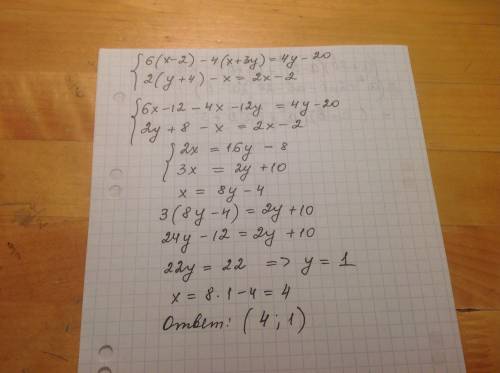 6(x-2) - 4(x+3y) = 4y - 20
2(y+4) - x = 2x - 2
6x - 12 - 4x - 12y = 4y - 20
2y + 8 - x = 2x - 2
2x = 16y - 8
3x = 2y + 10
x = 8y - 4
3(8y - 4) = 2y + 10
24y - 12 = 2y + 10
22y = 22 => y = 1
x = 8 · 1 - 4 = 4
Ответ: (4; 1)